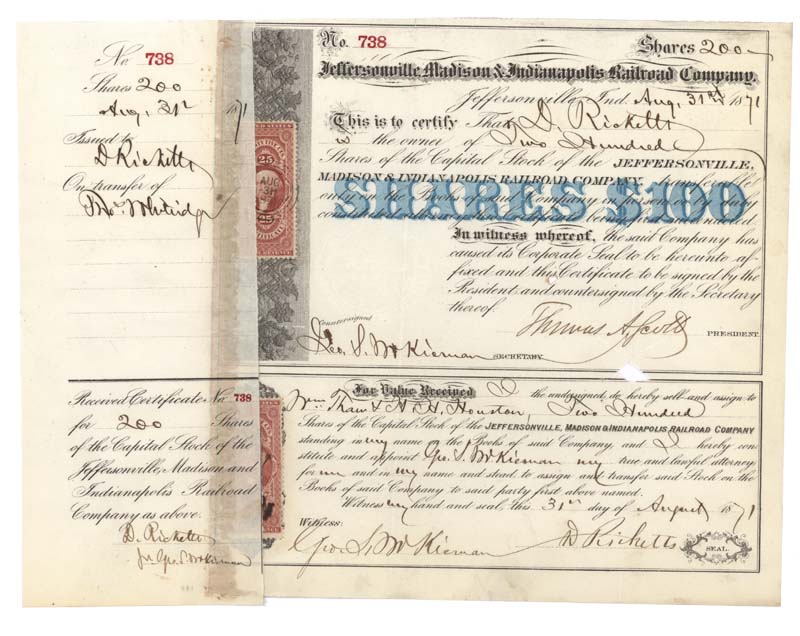 No. 738
Shares 200
Aug, 31st 1871
Issued to
D Ricketts
On transfer of
Received Certificate No 738
for 200 Shares
of the Capital Stock of the
Jeffersonville, Madison and
Indianapolis Railroad
Company as above.
D. Ricketts
pr Geo. S. McKiernan
25
AUG
31
25
No. 738 Shares 200
Jeffersonville, Madison & Indianapolis Railroad Company.
Jeffersonville, Ind. Aug, 31st 1871
This is to certify That D. Ricketts
is the owner of Two Hundred
Shares of the Capital Stock of the JEFFERSONVILLE,
MADISON & INDIANAPOLIS RAILROAD COMPANY, transferable
only on the Books of said Company in person or by duly
SHARES $100
In witness whereof, the said Company has
caused its Corporate Seal to be hereunto af-
fixed and this Certificate to be signed by the
President and countersigned by the Secretary
thereof.
Thomas A. Scott PRESIDENT.
Countersigned
Geo. S. McKiernan SECRETARY.
For Value Received I the undersigned do hereby sell and assign to
Wm Thaw & H. H. Houston, Two Hundred
Shares of the Capital Stock of the JEFFERSONVILLE, MADISON & INDIANAPOLIS RAILROAD COMPANY
standing in my name on the Books of said Company and I hereby con-
stitute and appoint Geo. S. McKiernan my true and lawful attorney
for me and in my name and stead to assign and transfer said Stock on the
Books of said Company to said party first above named.
Witness my hand and seal, this 31st day of August 1871
Witness:
Geo. S. McKiernan D Ricketts SEAL